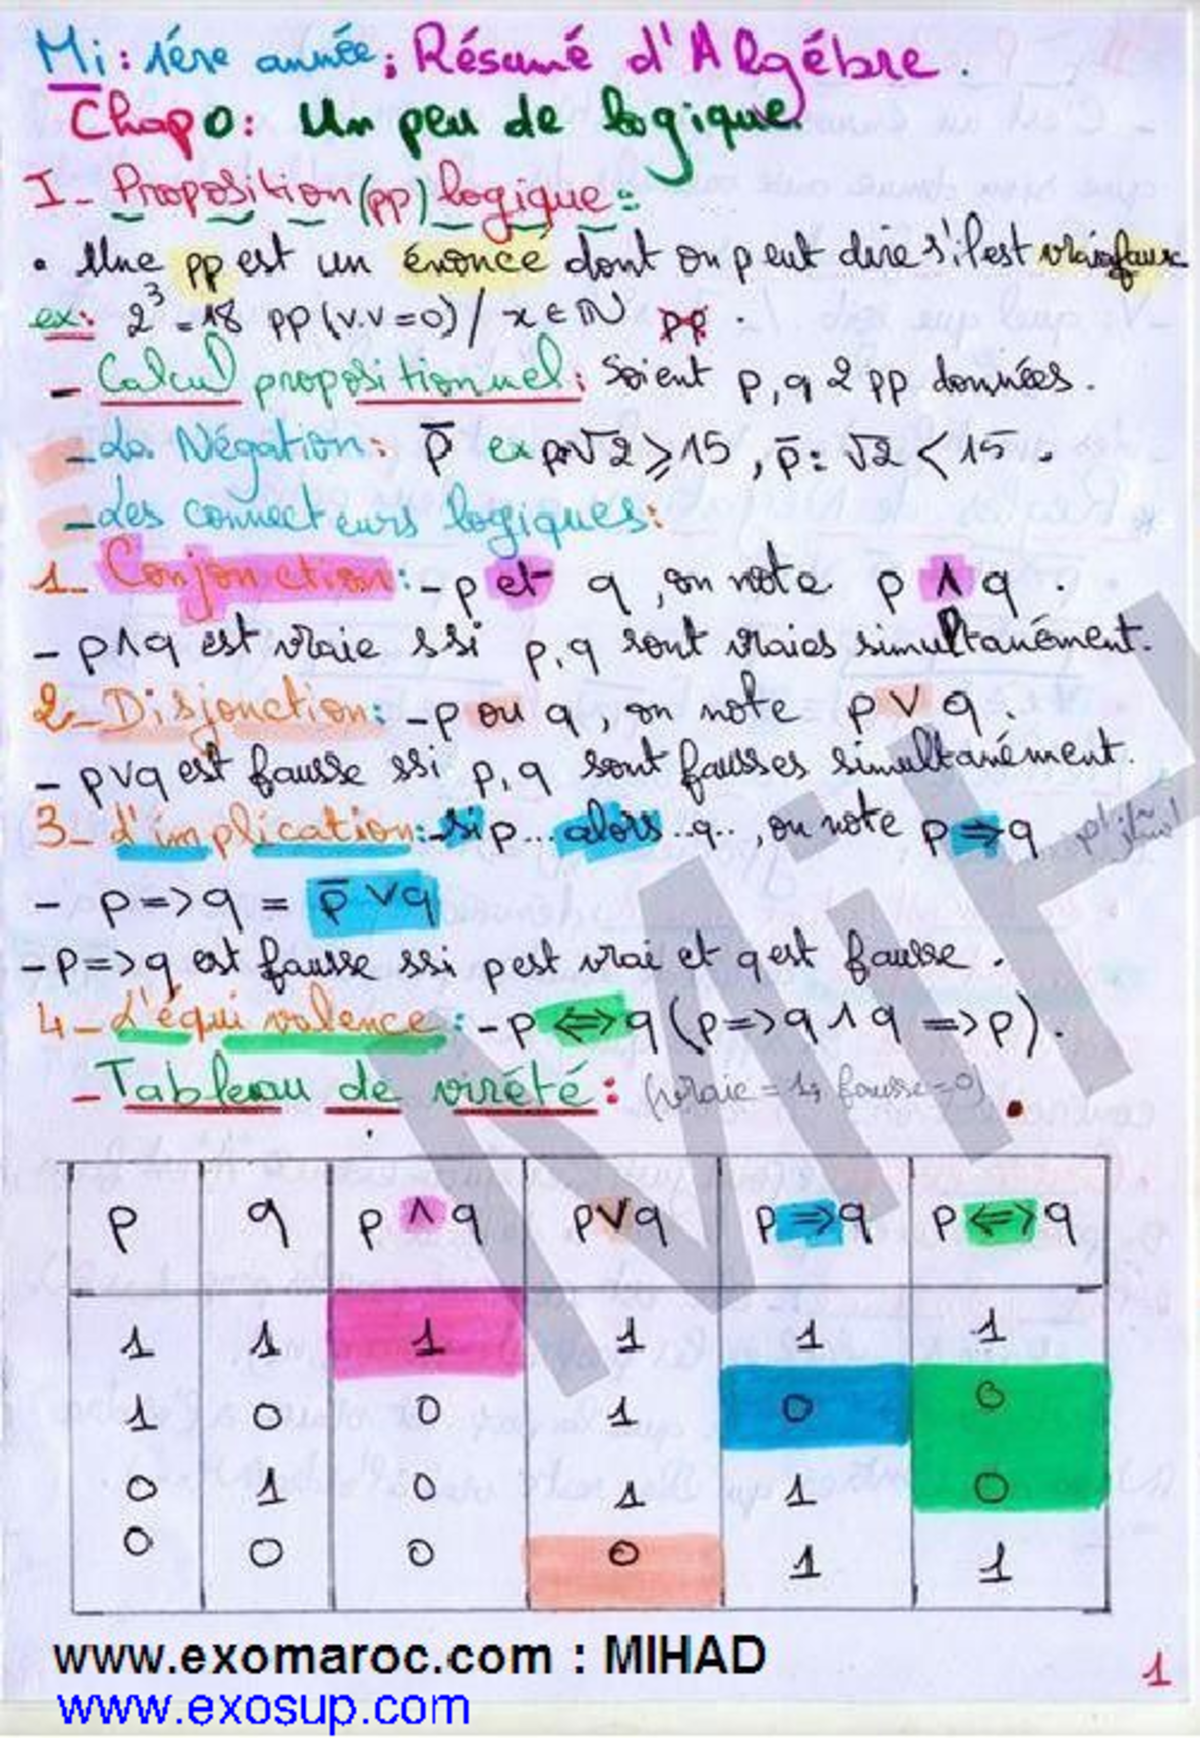 Mi: 1ére année; Résumé d'Algébre.
Chap 0: Un peu de logique
I- Proposition (pp) logique:
• Une pp est un énoncé dont on peut dire s'il est vrai faux
ex: 2³ = 18 pp (v.v=0) / x ∈ ℕ pp.
- Calcul propositionnel: Soient p, q 2 pp données.
- La Négation: p̅ ex p: √2 ⩾ 15, p̅: √2 < 15.
- Les connecteurs logiques:
1- Conjonction: - p et q, on note p ∧ q.
- p∧q est vraie ssi p, q sont vraies simultanément.
2- Disjonction: - p ou q, on note p ∨ q.
- p∨q est fausse ssi p, q sont fausses simultanément.
3- L'implication: - si p... alors ..q.., on note p ⇒ q
- p => q = p̅ ∨ q
- p => q est fausse ssi p est vrai et q est fausse.
4- L'équivalence: - p ⟺ q (p => q ∧ q => p).
- Tableau de virété: (vraie = 1, fausse = 0)
p q p ∧ q p ∨ q p ⇒ q p ⟺ q
1 1 1 1 1 1
1 0 0 1 0 0
0 1 0 1 1 0
0 0 0 0 1 1
www.exomaroc.com : MIHAD
1
www.exosup.com
MiH